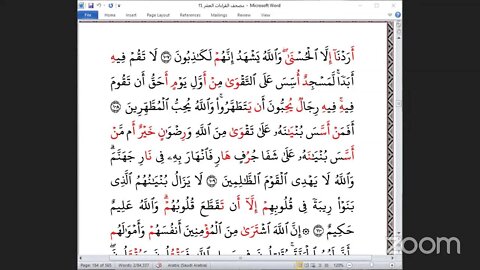 مصحف القراءات العشر 11 - Microsoft Word
File Home Insert Page Layout References Mailings Review View
أَرَدْنَا إِلَّا الْحُسْنَىٰ وَاللَّهُ يَشْهَدُ إِنَّهُمْ لَكَاذِبُونَ ۝ لَا تَقُمْ فِيهِ
أَبَدًا لَمَسْجِدٌ أُسِّسَ عَلَى التَّقْوَىٰ مِنْ أَوَّلِ يَوْمٍ أَحَقُّ أَن تَقُومَ
فِيهِ فِيهِ رِجَالٌ يُحِبُّونَ أَن يَتَطَهَّرُوا وَاللَّهُ يُحِبُّ الْمُطَّهِّرِينَ ۝
أَفَمَنْ أَسَّسَ بُنْيَانَهُ عَلَىٰ تَقْوَىٰ مِنَ اللَّهِ وَرِضْوَانٍ خَيْرٌ أَم مَّنْ
أَسَّسَ بُنْيَانَهُ عَلَىٰ شَفَا جُرُفٍ هَارٍ فَانْهَارَ بِهِ فِي نَارِ جَهَنَّمَ
وَاللَّهُ لَا يَهْدِي الْقَوْمَ الظَّالِمِينَ ۝ لَا يَزَالُ بُنْيَانُهُمُ الَّذِي
بَنَوْا رِيبَةً فِي قُلُوبِهِمْ إِلَّا أَن تَقَطَّعَ قُلُوبُهُمْ وَاللَّهُ عَلِيمٌ
حَكِيمٌ ۝ إِنَّ اللَّهَ اشْتَرَىٰ مِنَ الْمُؤْمِنِينَ أَنفُسَهُمْ وَأَمْوَالَهُم
Page: 194 of 565 Words: 2/84,337 Arabic (Saudi Arabia) 120%
zoom